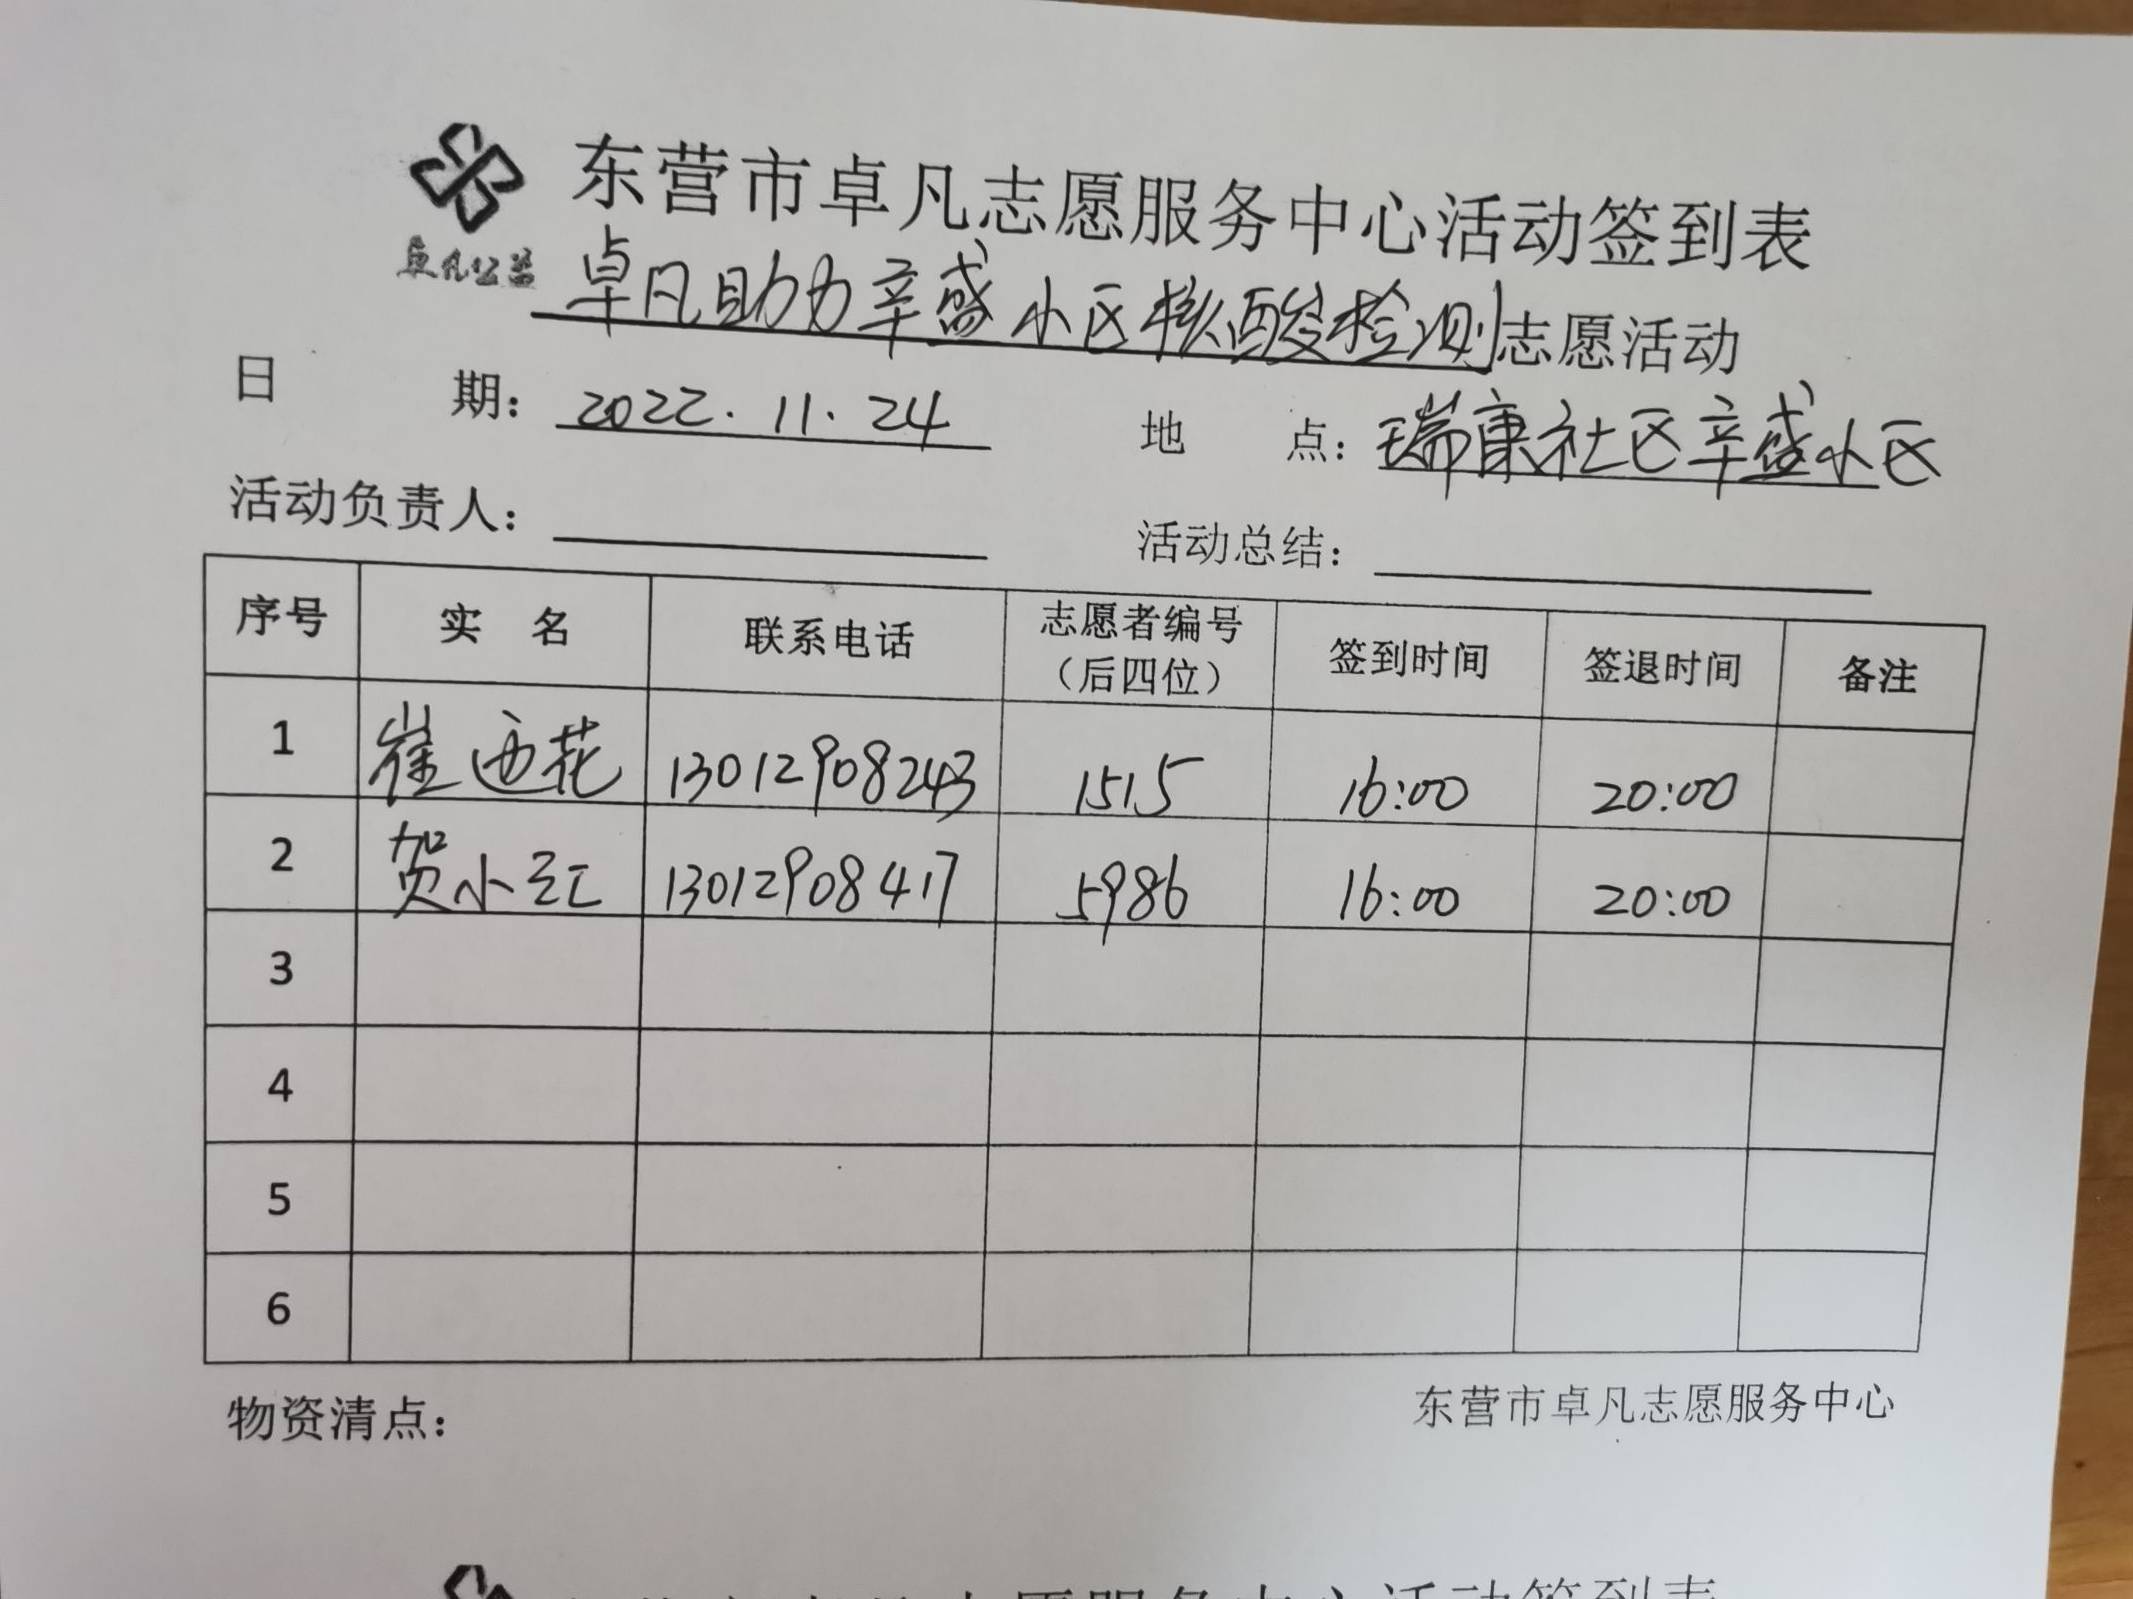 东营市卓凡志愿服务中心活动签到表
卓凡公益
卓凡助力辛盛小区核酸检测志愿活动
日 期：2022.11.24 地 点：瑞康社区辛盛小区
活动负责人： 活动总结：
序号 实 名 联系电话 志愿者编号（后四位） 签到时间 签退时间 备注
1 崔西花 13012908243 1515 16:00 20:00
2 贺小红 13012908417 5986 16:00 20:00
3
4
5
6
物资清点： 东营市卓凡志愿服务中心